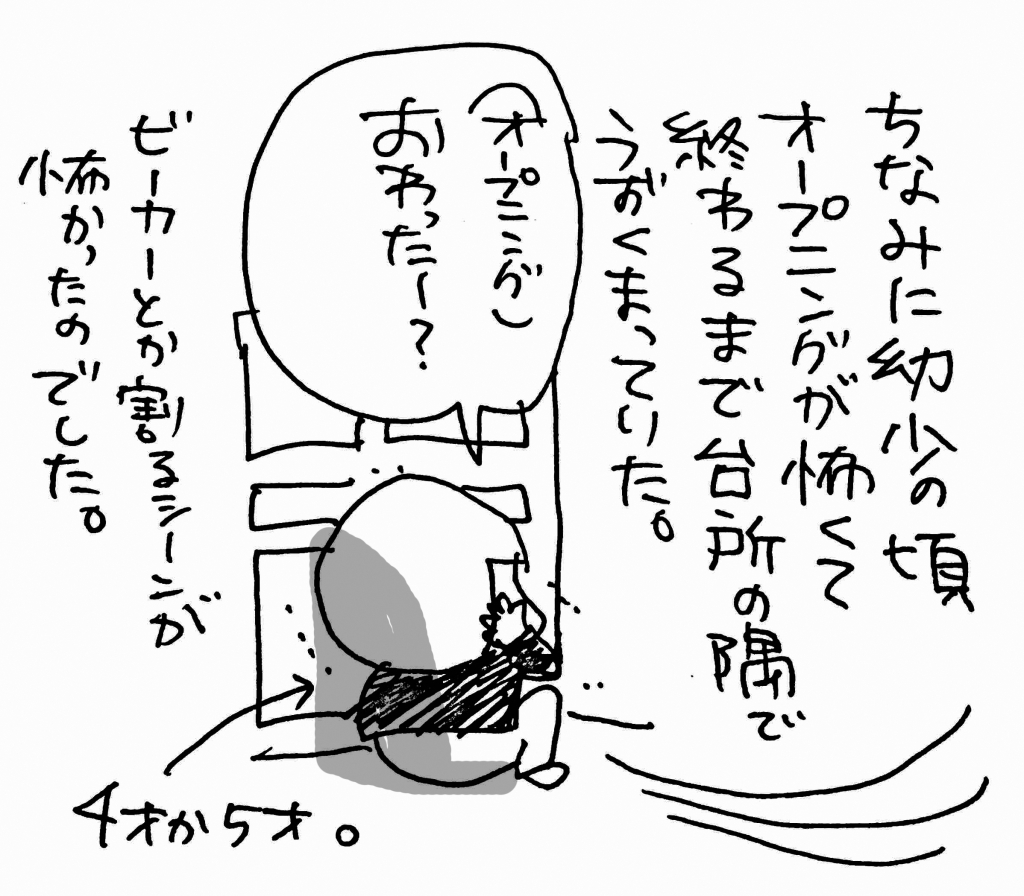 ちなみに幼少の頃
オープニングが怖くて
終わるまで台所の隅で
うずくまっていた。
(オープニング)
おわったー?
ビーカーとか割るシーンが
怖かったのでした。
4才から5才。